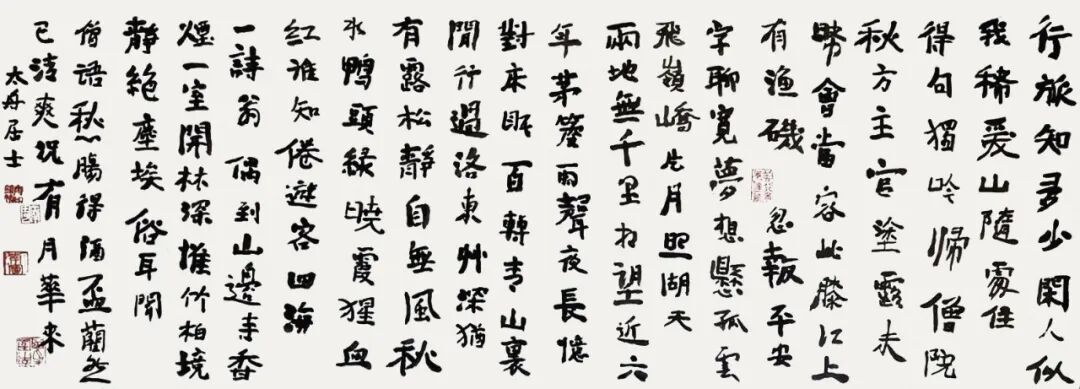 行旅知多少閑人似
我稀爱山隨處住
得句獨吟歸僧院
秋方主官塗露未
晞會當容此勝江上
有漁磯 忽報平安
字聊寬夢想懸孤雲
飛嶺嶠片月照湖天
兩地無千里相望近六
年茅簷雨聲夜長憶
對床眠百轉青山裏
閒行過洛東艸深猶
有露松靜自無風秋
水鴨頭緑曉霞猩血
紅誰知倦遊客四海
一詩翁 偶到山邊寺香
煙一室閑林深惟竹柏境
靜絶塵埃俗耳聞
僧語愁腸得酒盃蕭然
已清爽況有月華來
太舟居士